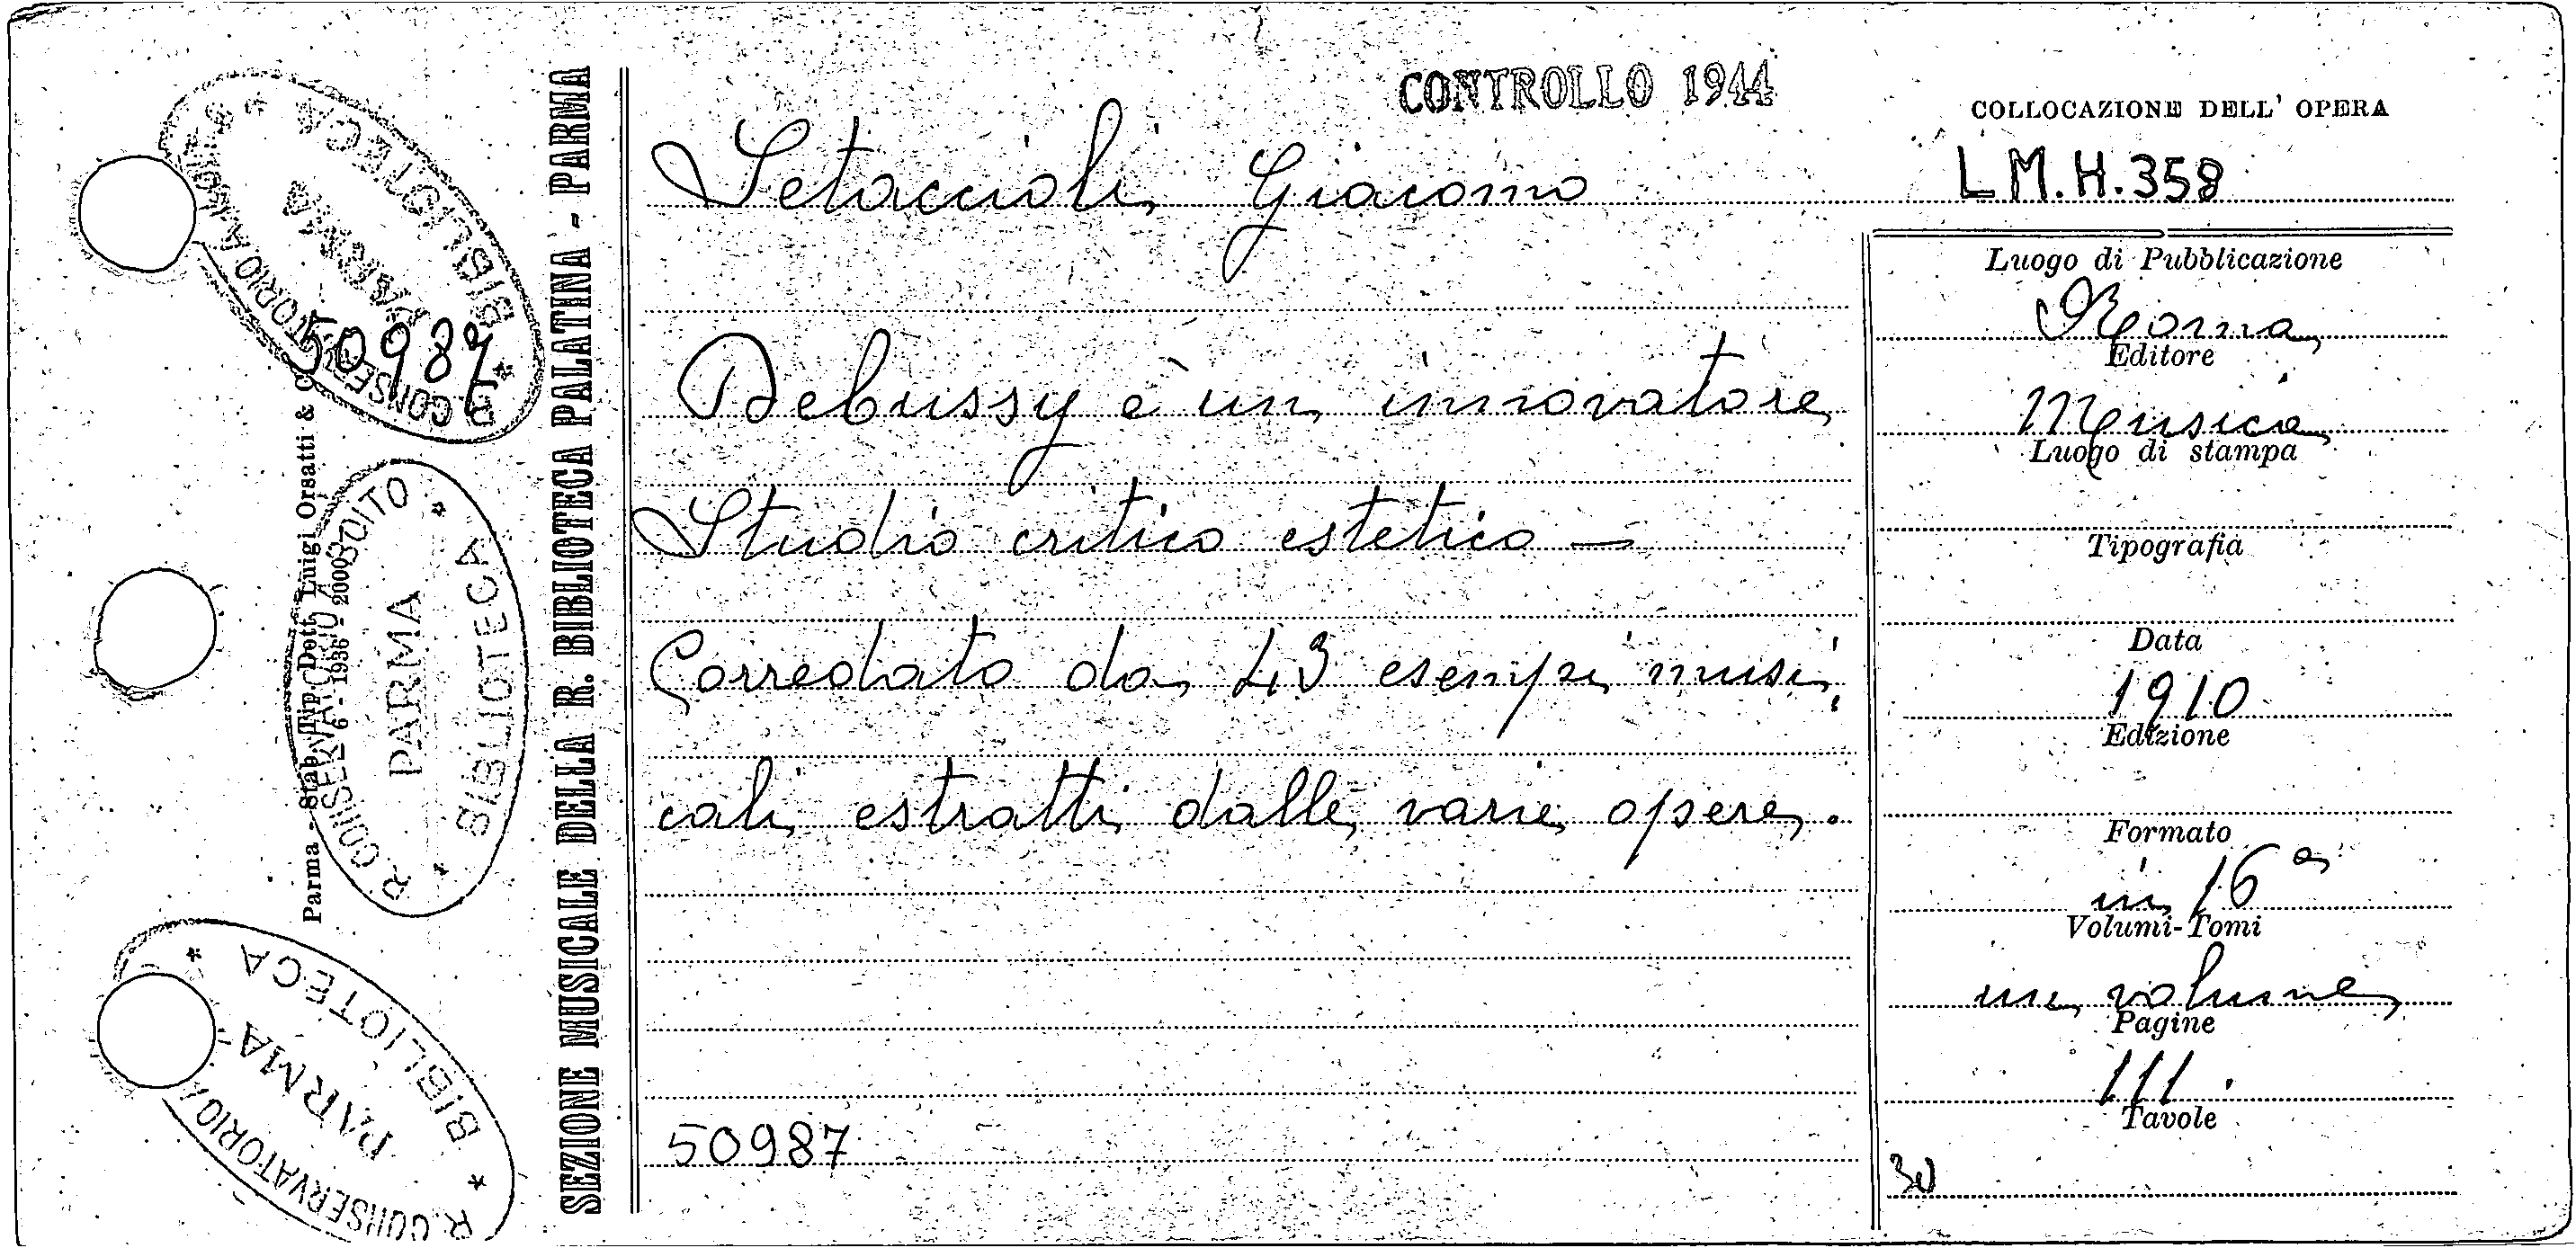 CONTROLLO 1944
COLLOCAZIONE DELL' OPERA
Setaccioli Giacomo
L M.H.358
Debussy è un innovatore
Studio critico estetico —
Corredato da 43 esempi musi:
cali estratti dalle varie opere.
50987
Luogo di Pubblicazione
Roma
Editore
Musica
Luogo di stampa
Tipografia
Data
1910
Edizione
Formato
in 16°
Volumi-Tomi
un volume
Pagine
111.
Tavole
30
SEZIONE MUSICALE DELLA R. BIBLIOTECA PALATINA - PARMA
Parma - Stab. Tip. Dott. Luigi Orsatti & C.
6 - 1936 - 20000
R. CONSERVATORIO
BIBLIOTECA
PARMA
50987
R. CONSERVATORIO A. BOITO
PARMA
BIBLIOTECA
BIBLIOTECA
PARMA
R. CONSERVATORIO A